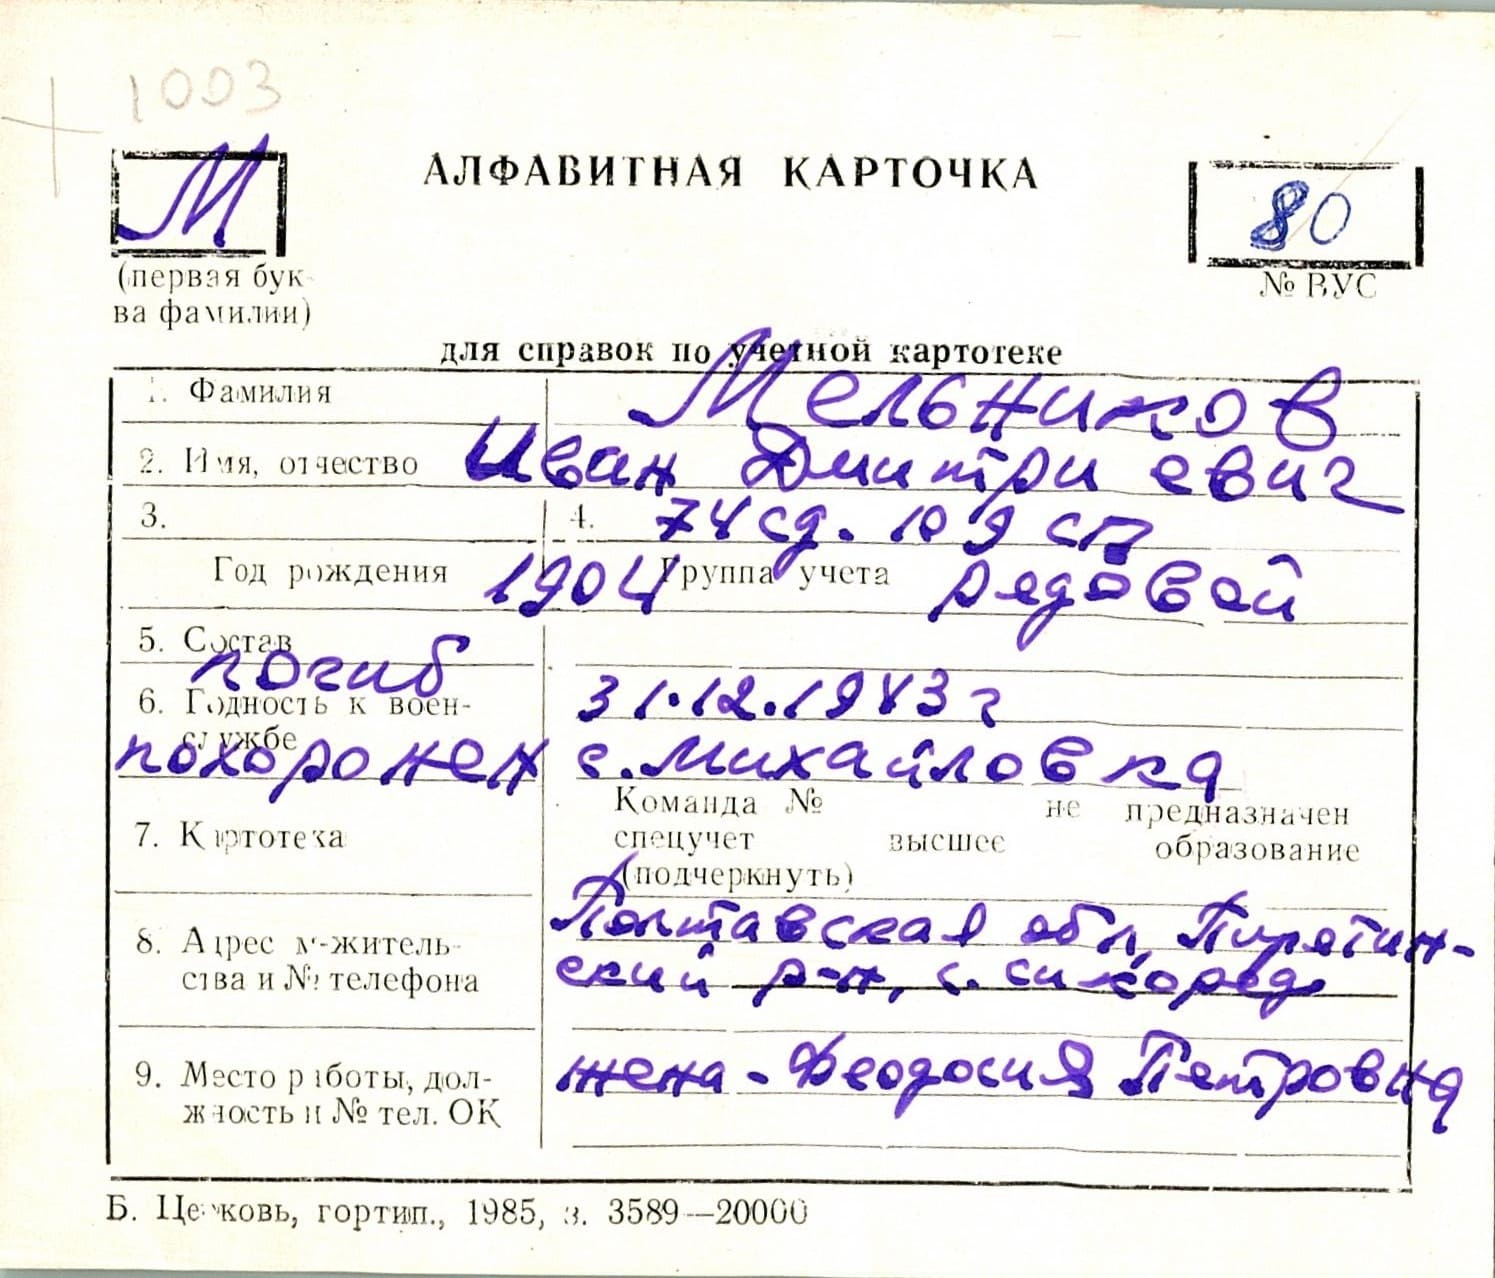 1003
М
АЛФАВИТНАЯ КАРТОЧКА
80
(первая бук-
ва фамилии)
№ ВУС
для справок по учетной картотеке
1. Фамилия Мельников
2. Имя, отчество Иван Дмитриевич
3. 4. 74 сд. 109 сп
Год рождения 1904 Группа учета рядовой
5. Состав
погиб 31.12.1943 г
6. Годность к воен-
службе
похоронен с. Михайловка
Команда № не предназначен
7. Картотека спецучет высшее образование
(подчеркнуть)
Полтавская обл, Пирятин-
8. Адрес м-житель-
ства и № телефона ский р-н, с.
9. Место работы, дол- жена - Феодосия Петровна
жность и № тел. ОК
Б. Церковь, гортип., 1985, з. 3589—20000